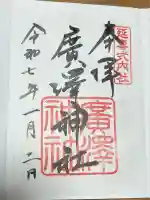 延喜式内社
奉拝
廣澤神社
廣澤神社
令和七年一月二日